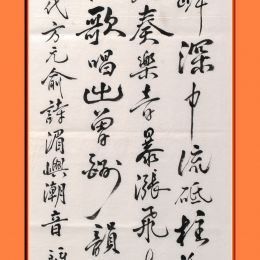 深中流砥柱
奏樂音暴漲飛
歌唱出曾斵韻
代方元俞詩湄嶼潮音